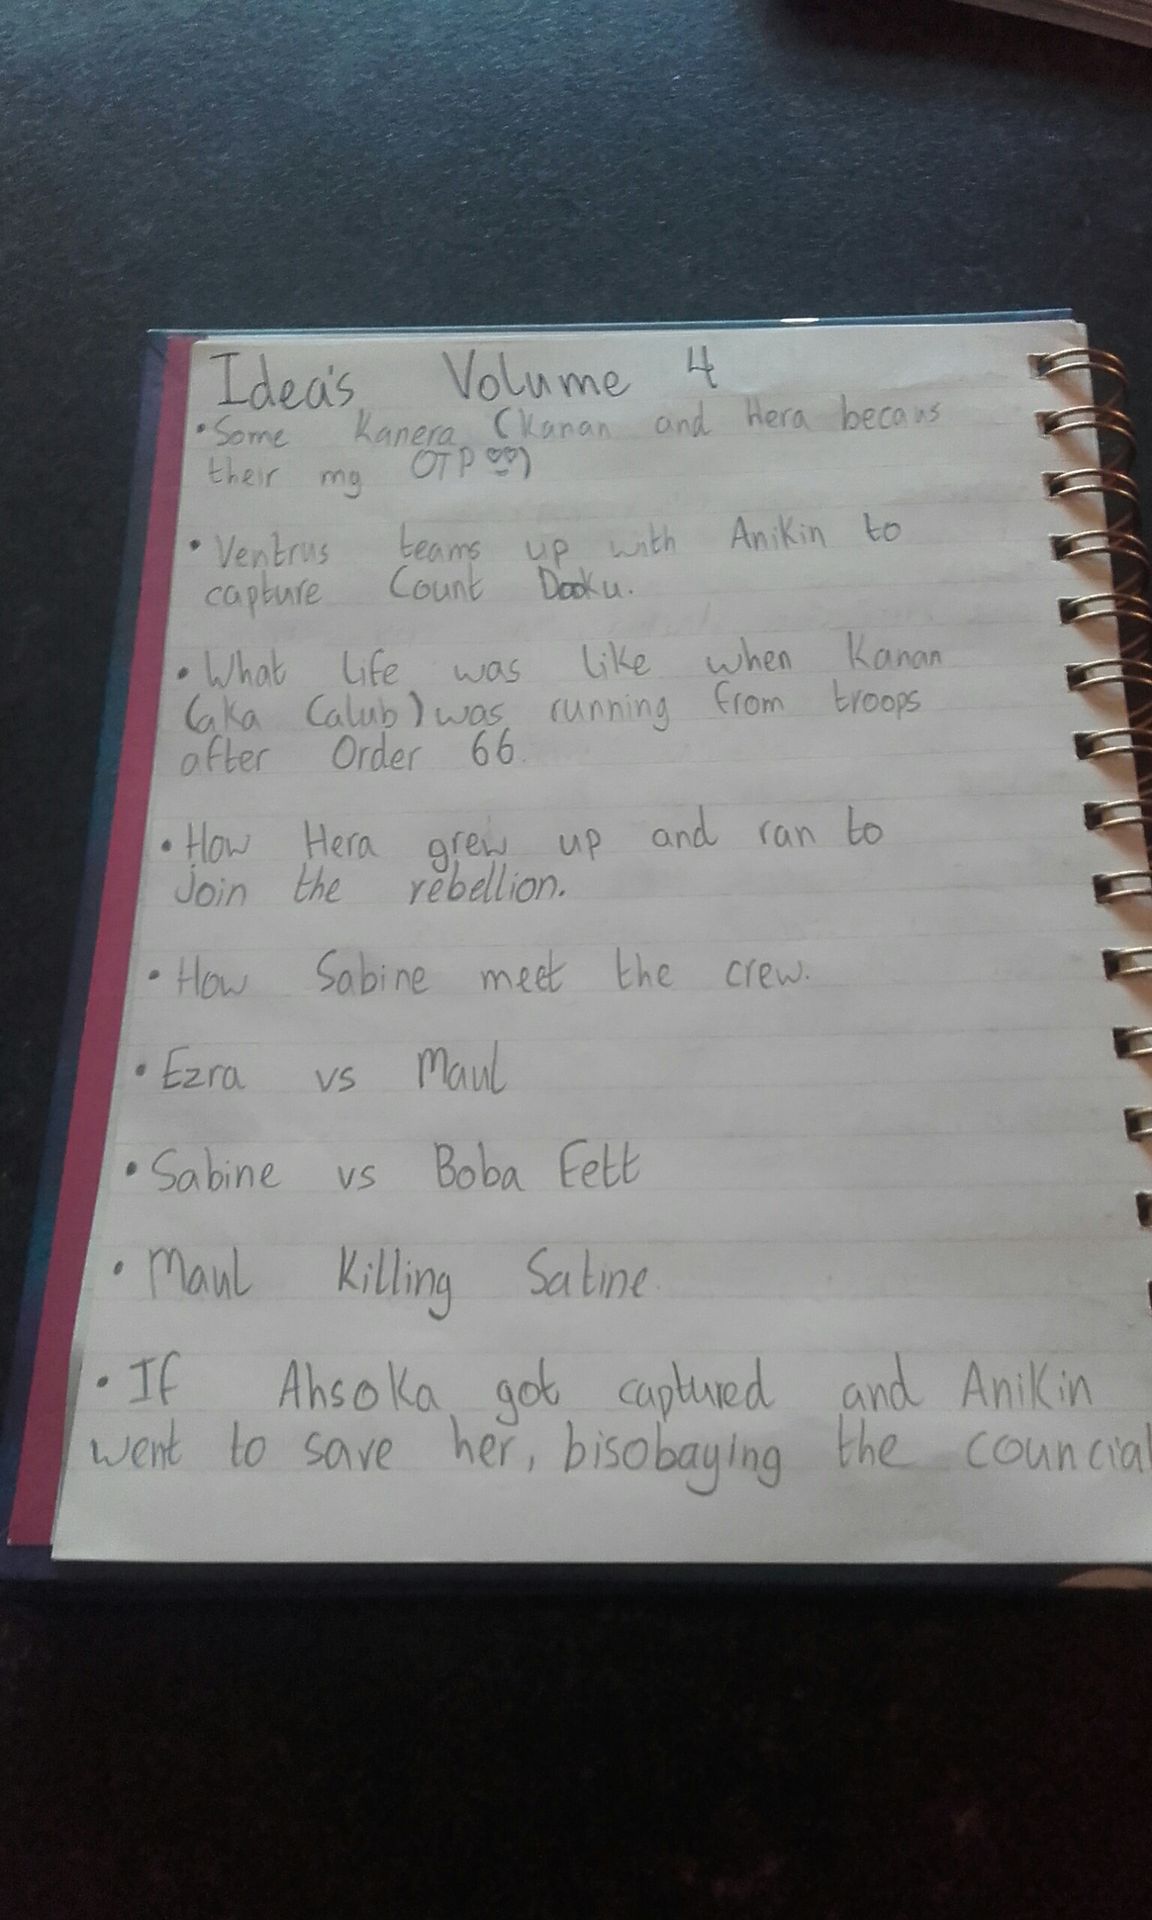 Idea's Volume 4
• Some Kanera (Kanan and Hera becaus
their my OTP )
• Ventrus teams up with Anikin to
capture Count Dooku.
• What life was like when Kanan
(aka Calub) was running from troops
after Order 66.
• How Hera grew up and ran to
join the rebellion.
• How Sabine meet the crew.
• Ezra vs Maul
• Sabine vs Boba Fett
• Maul Killing Satine.
• If Ahsoka got captured and Anikin
went to save her, bisobaying the councial